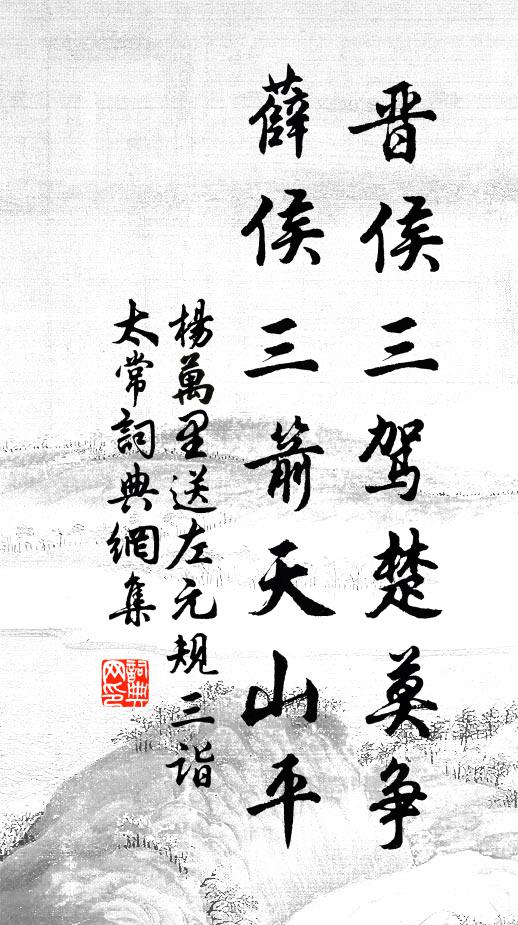 晋侯三驾楚莫争
薛侯三箭天山平
楊萬里送左元规三诣
太常詞典網集
詞典网印